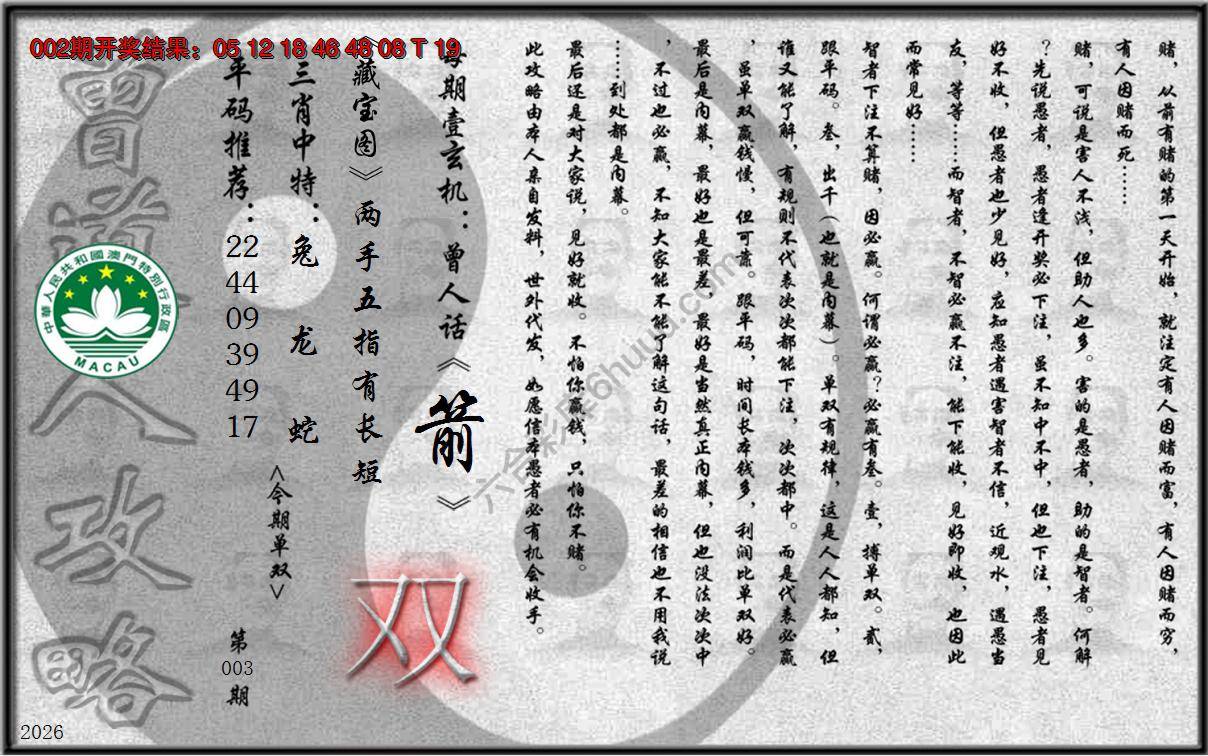 002期开奖结果：05 12 18 46 48 08 T 19
赌，从前有赌的第一天开始，就注定有人因赌而富，有人因赌而穷，
有人因赌而死……
赌，可说是害人不浅，但助人也多。害的是愚者，助的是智者。何解
？先说愚者，愚者逢开奖必下注，虽不知中不中，但也下注，愚者见
好不收，但愚者也少见好，应知愚者遇害智者不信，近观水，遇愚当
友，等等……而智者，不智必赢不注，能下能收，见好即收，也因此
而常见好……
智者下注不算赌，因必赢。何谓必赢？必赢有叁。壹，搏单双。贰，
跟平码。叁，出千（也就是内幕）。单双有规律，这是人人都知，但
谁又能了解，有规则不代表次次都能下注，次次都中。而是代表必赢
，虽单双赢钱慢，但可靠。跟平码，时间长本钱多，利润比单双好。
最后是内幕，最好也是最差，最好是当然真正内幕，但也没法次次中
，不过也必赢，不知大家能不能了解这句话，最差的相信也不用我说
……到处都是内幕。
最后还是对大家说，见好就收。不怕你赢钱，只怕你不赌。
此攻略由本人亲自发料，世外代发，如愿信本愚者必有机会收手。
每期壹玄机：曾人话《箭》
《藏宝图》两手五指有长短
三肖中特：兔 龙 蛇
<今期单双>
双
平码推荐：
22
44
09
39
49
17
第
003
期
曾道人攻略
中華人民共和國澳門特別行政區
MACAU
六合彩库6huuu.com
2026